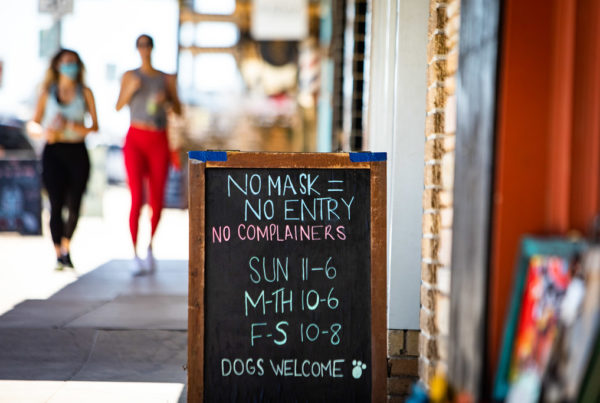 NO MASK =
NO ENTRY
NO COMPLAINERS
SUN 11-6
M-TH 10-6
F-S 10-8
DOGS WELCOME